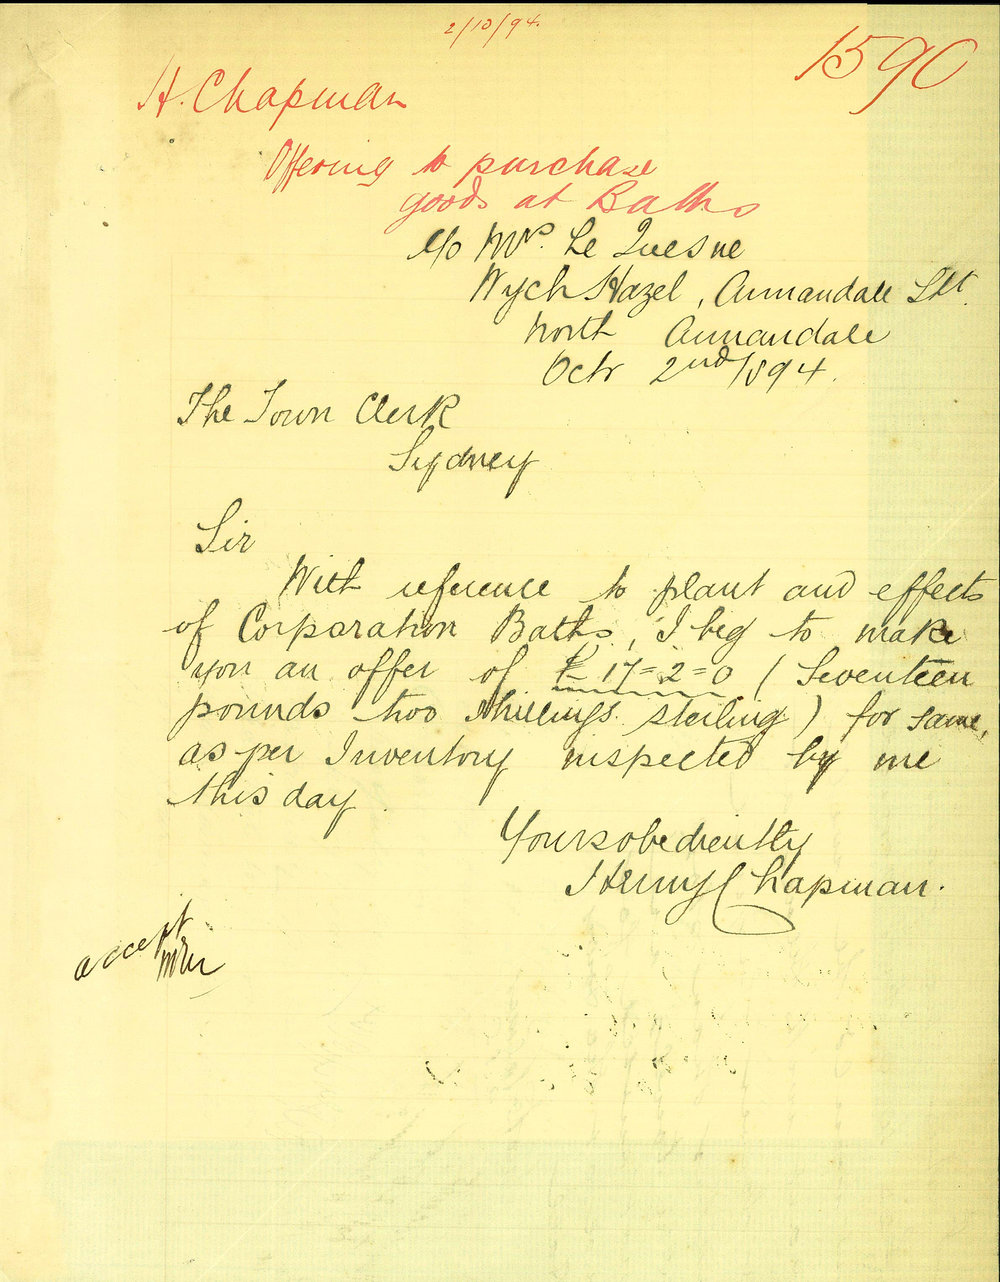 2/10/94.
1590
H. Chapman
Offering to purchase
goods at Baths
c/o Mrs. Le Quesne
Wych Hazel, Annandale Stt.
North Annandale
Octr 2nd/894.
The Town Clerk
Sydney
Sir
With reference to plant and effects
of Corporation Baths, I beg to make
you an offer of £17=2=0 (Seventeen
pounds two shillings sterling) for same,
as per Inventory inspected by me
this day.
Yours obediently
Henry Chapman.
accept